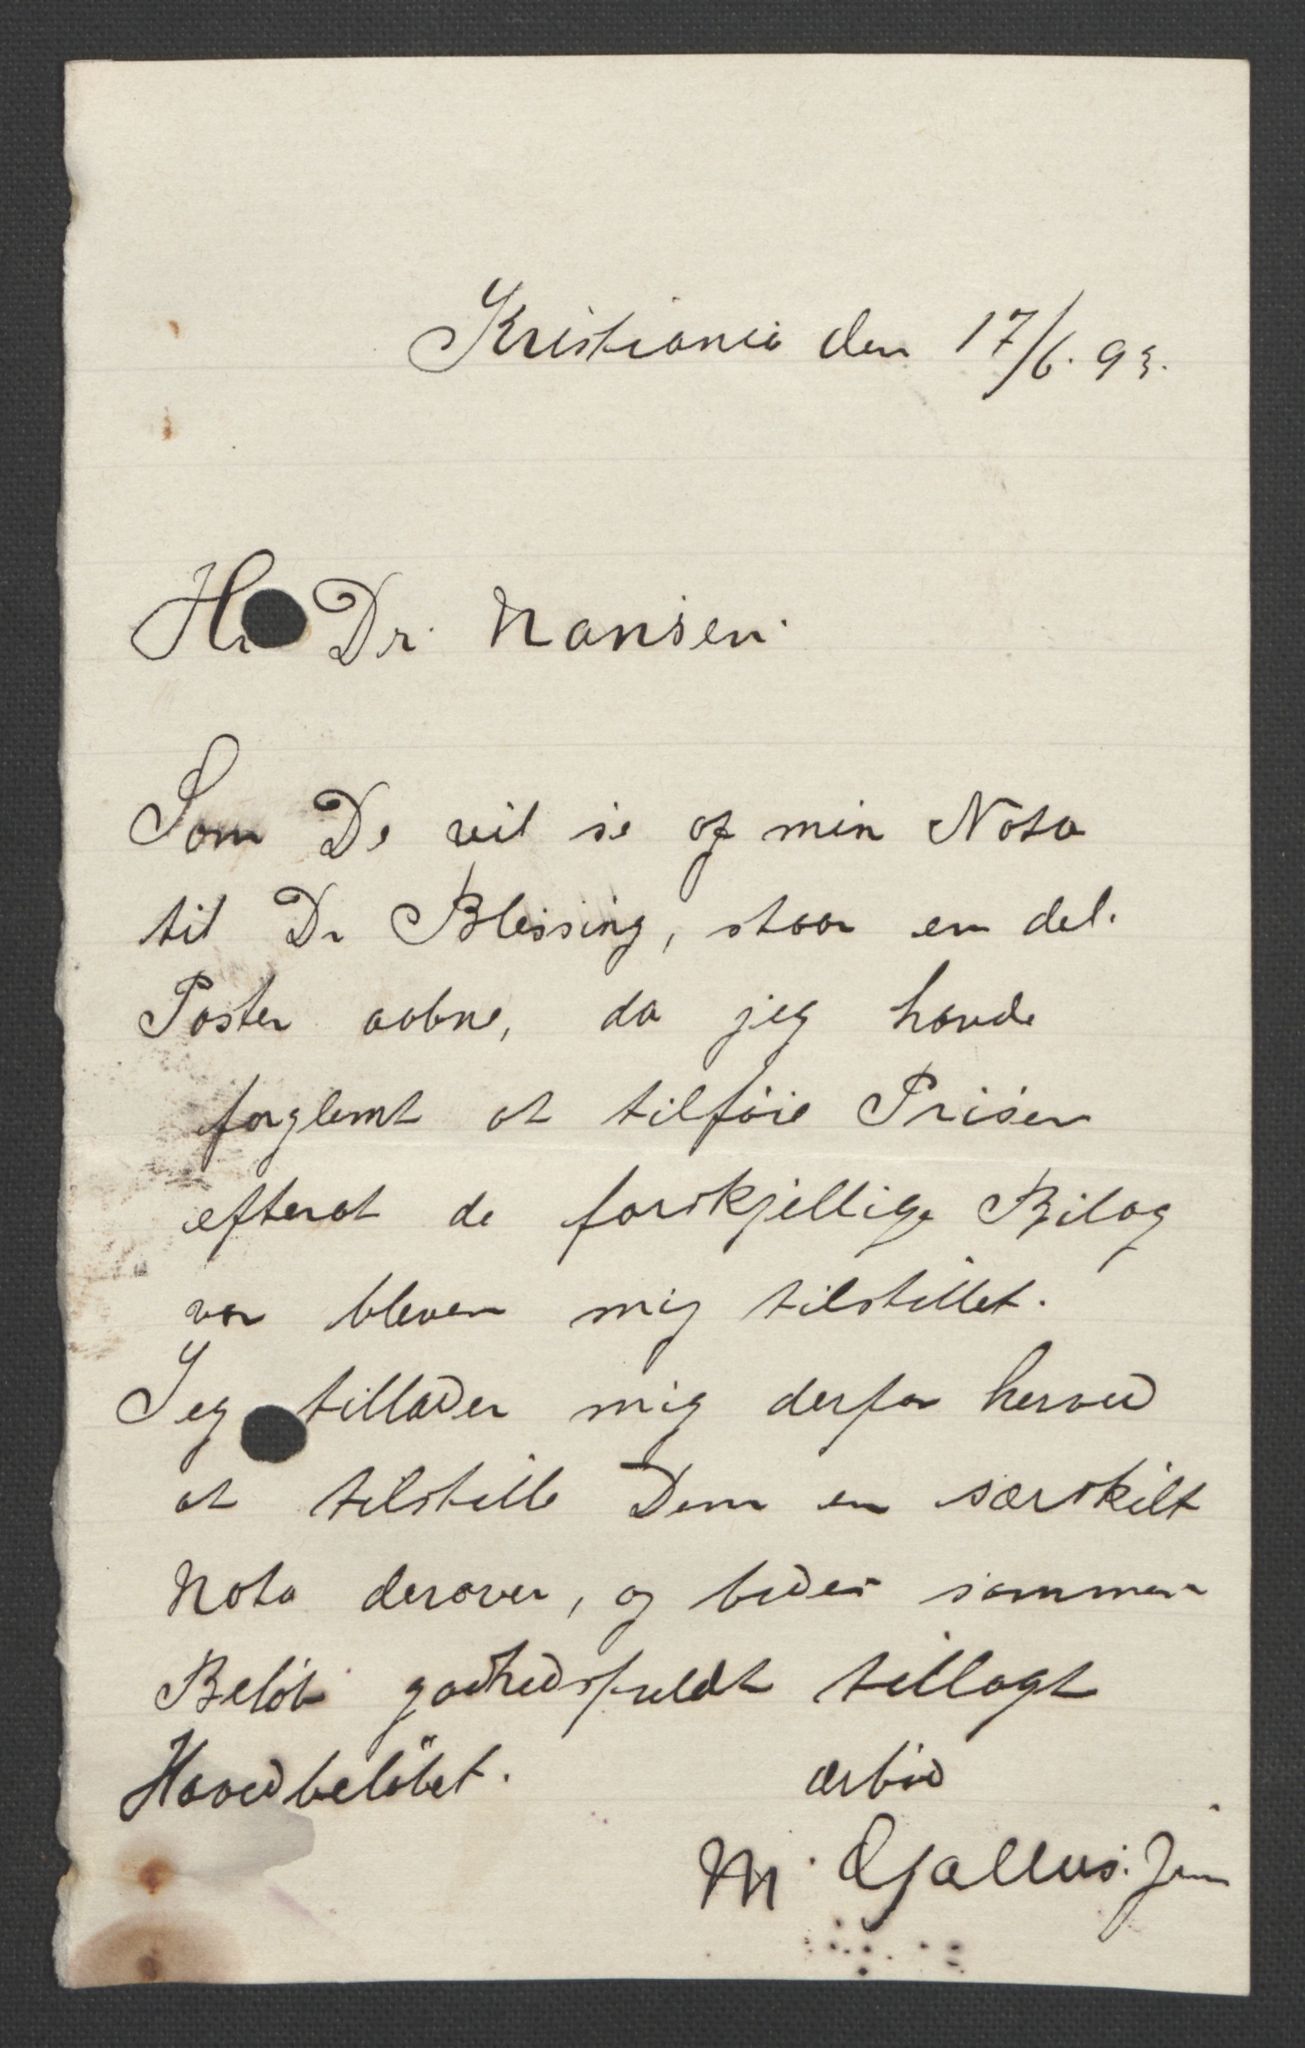 Kristiania den 17/6. 93.
Hr Dr. Nansen.
Som De vil se af min Nota
til Dr Blessing, staar en del.
Poster aabne, da jeg havde
forglemt at tilføie Prisen
efterat de forskjellige Bilag
var bleven mig tilstillet.
Jeg tillader mig derfor herved
at tilstille Dem en særskilt
Nota derover, og bedes sammen
Beløb godhedsfuldt tillagt
Hovedbeløbet.
ærbød
M. Gallus. Jun